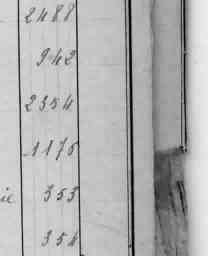 2488
942
2354
1175
ie 353
354